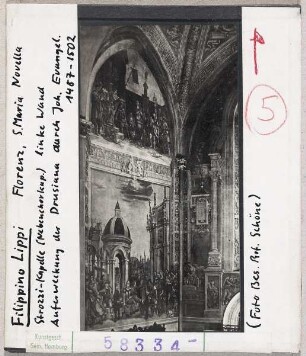 Filippino Lippi Florenz, S. Maria Novella
Strozzi-Kapelle (Nebenchorkap.) linke Wand
Auferweckung der Drusiana durch Joh. Evangel.
1487-1502
5
(Foto Bes. Prof. Schöne)
Kunstgesch.
Sem. Hamburg
58334-